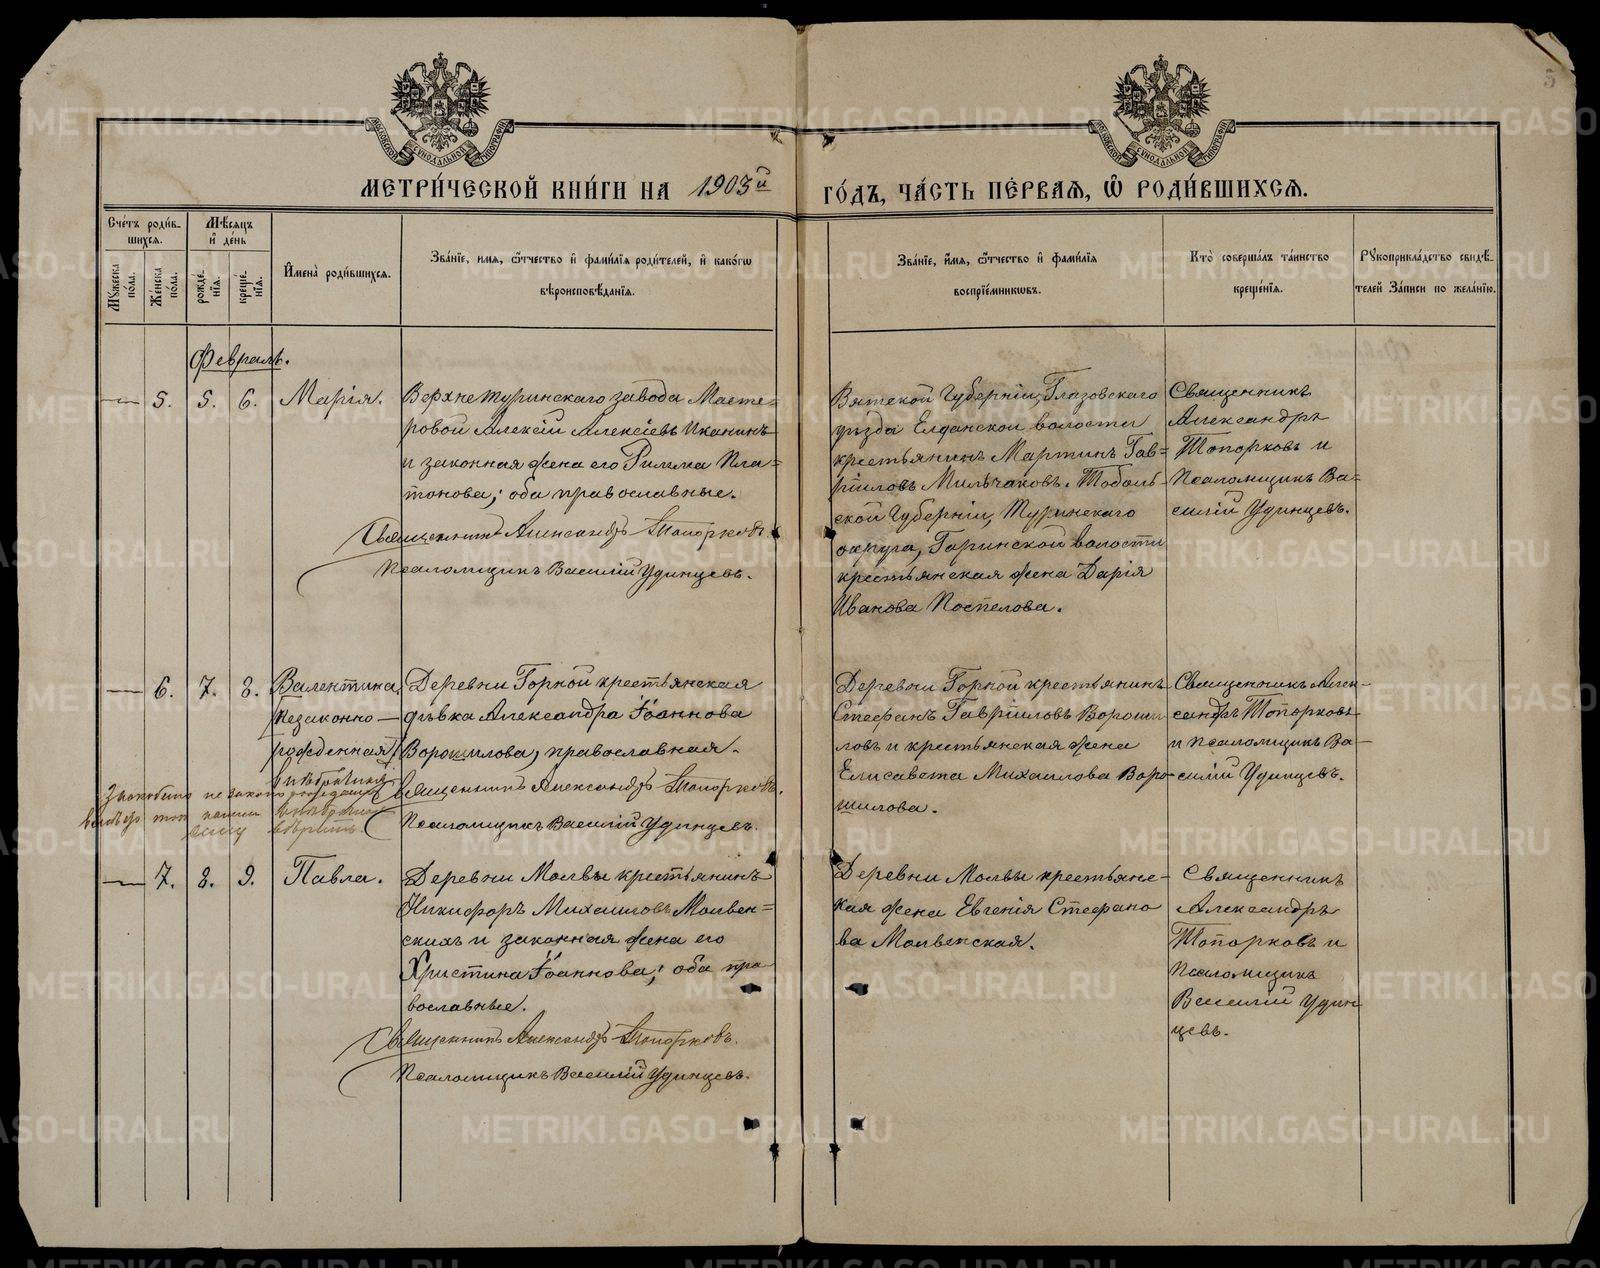 МЕТРИ́ЧЕСКОЙ КНИ́ГИ НА 1903й ГО́ДЪ, ЧА́СТЬ ПЕ́РВАѦ, Ѽ РОДИ́ВШИХСѦ.
Сче́тъ роди́в-
шихсѧ.
Мꙋжеска
по́ла.
Же́нска
по́ла.
Мѣ́сѧцъ
и҆ де́нь
рожде́-
нїѧ.
креще́-
нїѧ.
И҆мена̀ роди́вшихсѧ.
Зва́нїе, имѧ, ѻ҆́тчество и҆ фами́лїѧ роди́телей, и҆ како́гѡ
вѣроисповѣ́данїѧ.
Зва́нїе, и҆́мѧ, ѻ҆́тчество и҆ фами́лїѧ
воспрїе́мникѡвъ.
Кто̀ соверша́лъ та́инство
креще́нїѧ.
Рꙋкоприкла́дство свидѣ́-
телей За́писи по жела́нїю.
Февраль.
— 5. 5. 6. Марія.
Верхнетуринскаго завода Масте=
ровой Алексій Алексіевъ Иканинъ
и законная жена его Римма Пла=
тонова; оба православные.
Священникъ Александръ Топорковъ.
Псаломщикъ Василій Удинцевъ.
Вятской Губерніи, Глазовскаго
уѣзда Елганской волости
крестьянинъ Мартинъ Гав=
ріиловъ Мильчаковъ. Тоболь-
ской Губерніи, Туринскаго
округа, Гаринской волости
крестьянская жена Дарія
Иванова Поспелова.
Священникъ
Александръ
Топорковъ и
Псаломщикъ Ва-
силій Удинцевъ.
— 6. 7. 8. Валентина
(незаконно—
рожденная)
Деревни Горной крестьянская
дѣвка Александра Іоаннова
Ворошилова, православная.
Священникъ Александръ Топорковъ.
Псаломщикъ Василій Удинцевъ.
Деревни Горной крестьянинъ
Стефанъ Гавріиловъ Вороши
ловъ и крестьянская жена
Елисавета Михаилова Воро-
шилова.
Священникъ Алек-
сандръ Топорковъ
и Псаломщикъ Ва-
силій Удинцевъ.
— 7. 8. 9. Павла.
Деревни Молвы крестьянинъ
Никифоръ Михаиловъ Молвен=
скихъ и законная жена его
Христина Іоаннова; оба пра
вославные.
Священникъ Александръ Топорковъ.
Псаломщикъ Василій Удинцевъ.
Деревни Молвы крестьянс-
кая жена Евгенія Стефано
ва Молвенская.
Священникъ
Александръ
Топорковъ и
Псаломщикъ
Василій Удин
цевъ.
METRIKI.GASO-URAL.RU